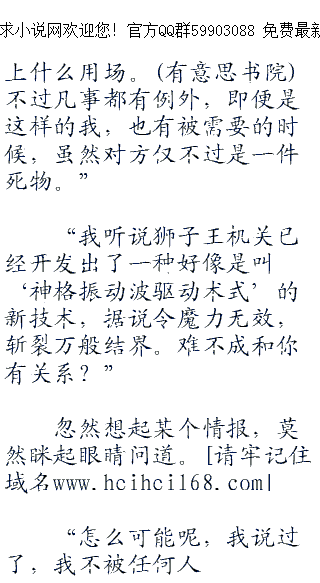 求小说网欢迎您! 官方QQ群59903088 免费最新
上什么用场。(有意思书院)
不过凡事都有例外，即便是
这样的我，也有被需要的时
候，虽然对方仅不过是一件
死物。”
“我听说狮子王机关已
经开发出了一种好像是叫
‘神格振动波驱动术式’的
新技术，据说令魔力无效，
斩裂万般结界。难不成和你
有关系？”
忽然想起某个情报，莫
然眯起眼睛问道。[请牢记住
域名www.hcihci168.com|
“怎么可能呢，我说过
了，我不被任何人